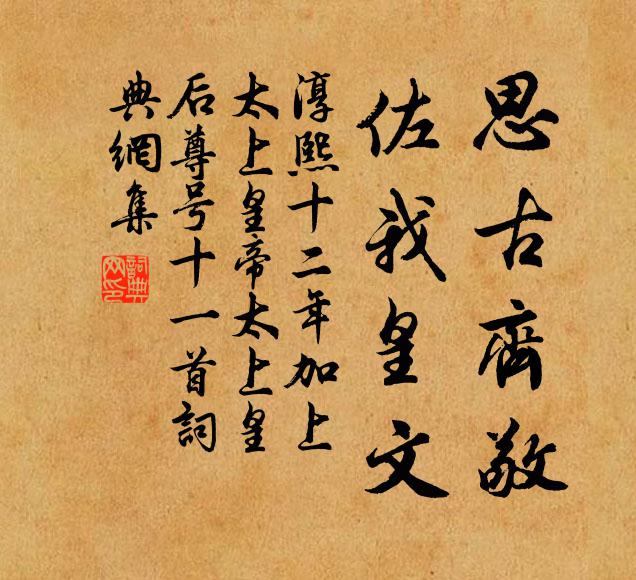 思古齊敬
佐我皇文
淳熙十二年加上
太上皇帝太上皇
后尊号十一首詞
典網集
詞典
网印